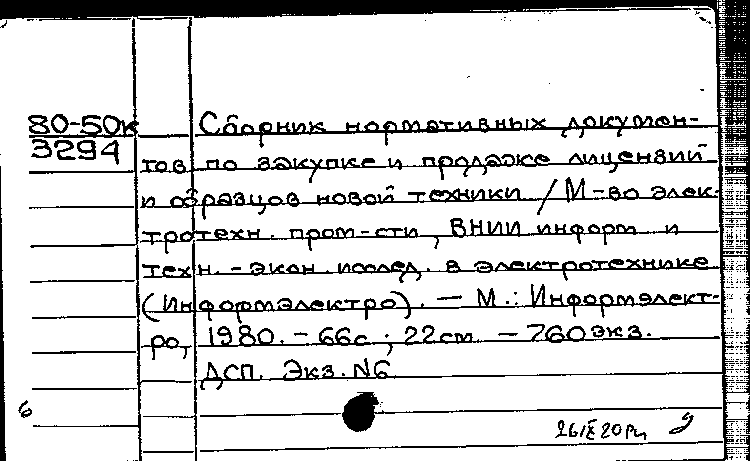 80-50к
3294
Сборник нормативных докумен-
тов по закупке и продаже лицензий
и образцов новой техники / М-во элек-
тротехн. пром-сти, ВНИИ информ и
техн.-экон. исслед. в электротехнике
(Информэлектро). — М.: Информэлект-
ро, 1980. - 66с; 22см - 760 экз.
ДСП. Экз. N6
6